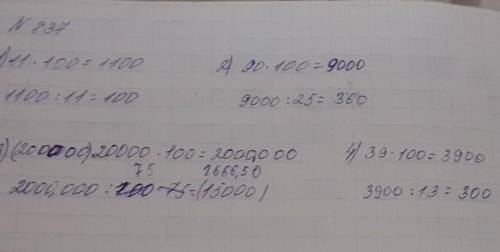 N 837
1) 11 · 100 = 1100
1100 : 11 = 100
2) 90 · 100 = 9000
9000 : 25 = 360
) (200000) 20000 · 100 = 2000,000
75 2666,50
2000,000 : 75 = (15000)
4) 39 · 100 = 3900
3900 : 13 = 300